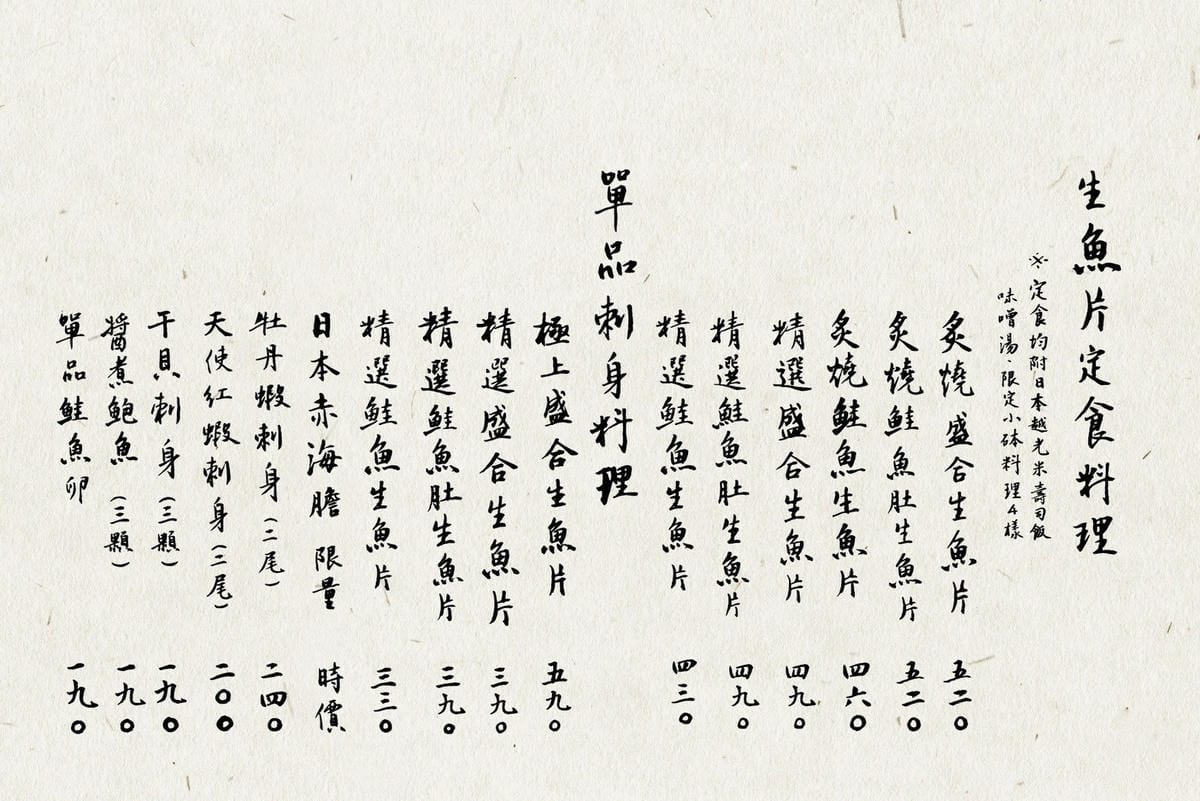 生魚片定食料理
※定食均附日本越光米壽司飯
味噌湯、限定小缽料理4樣
炙燒盛合生魚片 五二〇
炙燒鮭魚肚生魚片 五二〇
炙燒鮭魚生魚片 四六〇
精選盛合生魚片 四九〇
精選鮭魚肚生魚片 四九〇
精選鮭魚生魚片 四三〇
單品刺身料理
極上盛合生魚片 五九〇
精選盛合生魚片 三九〇
精選鮭魚肚生魚片 三九〇
精選鮭魚生魚片 三三〇
日本赤海膽 限量 時價
牡丹蝦刺身(三尾) 二四〇
天使紅蝦刺身(三尾) 二〇〇
干貝刺身(三顆) 一九〇
醬煮鮑魚(三顆) 一九〇
單品鮭魚卵 一九〇